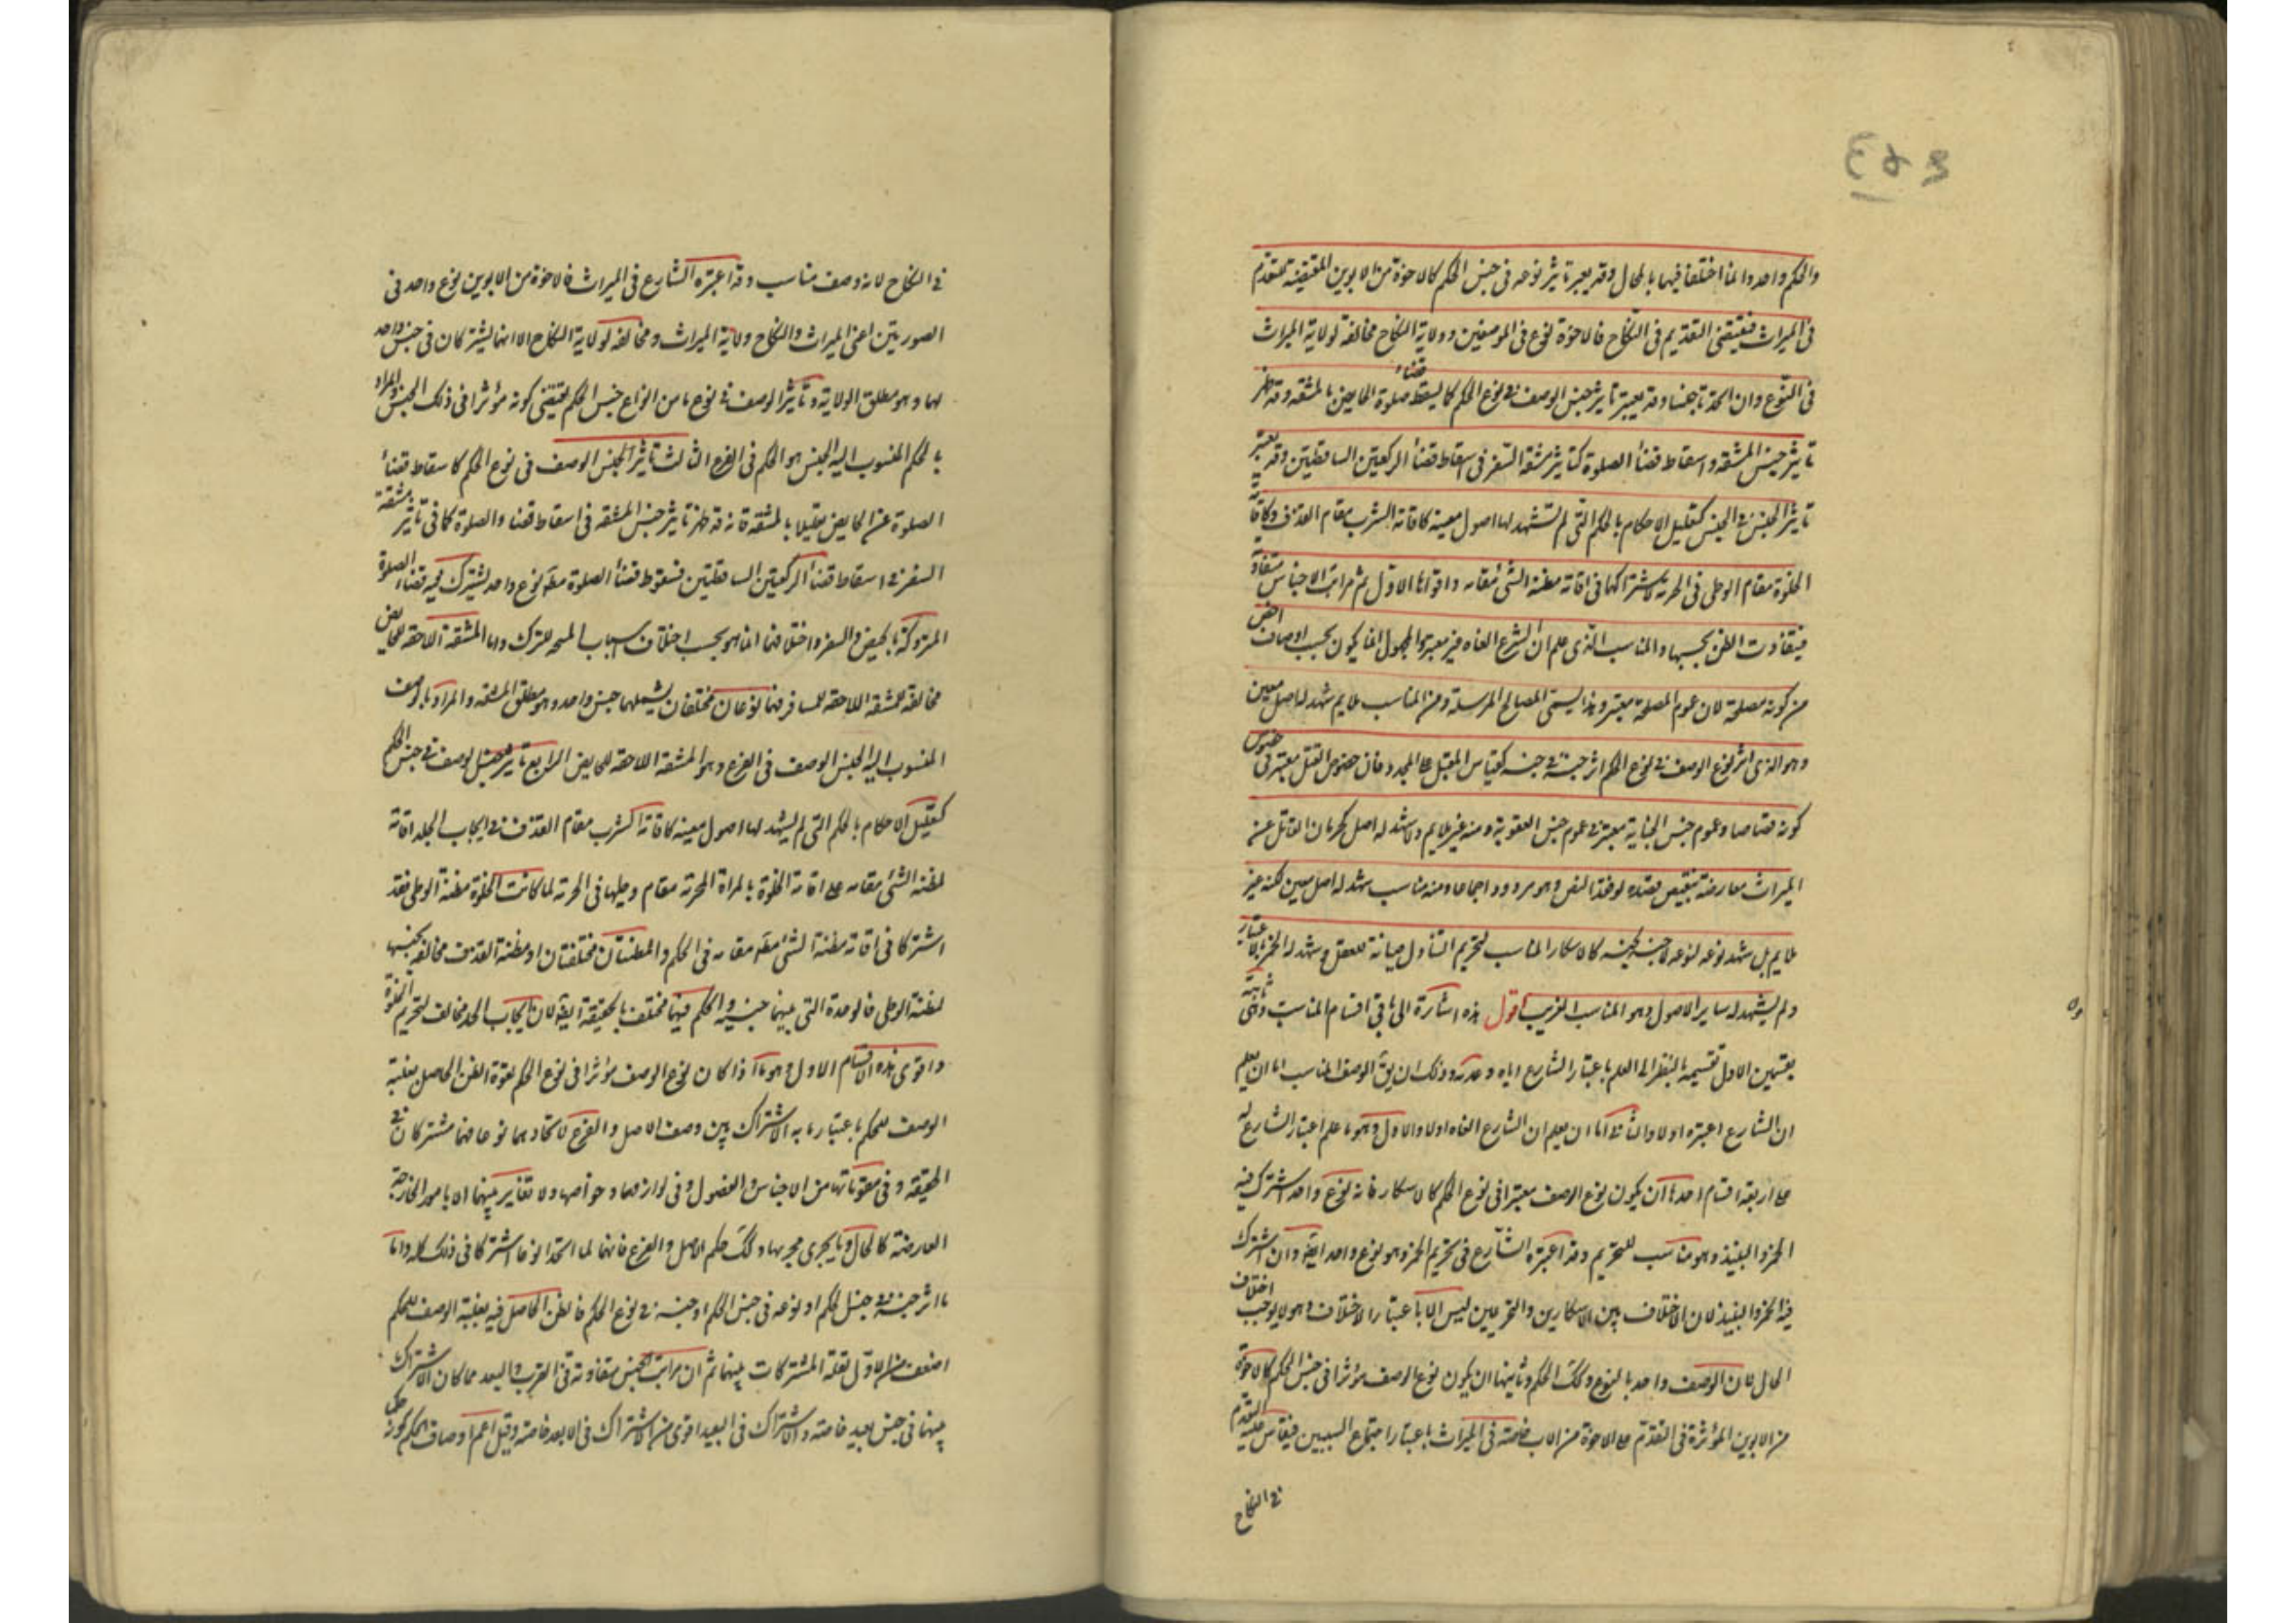 والحكم واحد وانما اختلفا فيهما بالمحال وقد يعتبر تأثير نوعه في جنس الحكم كالاخوة من الابوين المقتضية للتقدم
في الميراث فيقتضي التقديم في النكاح فالاخوة نوع في الموضعين وولاية النكاح مخالفة لولاية الميراث
في النوع وان اتحدتا جنسا وقد يعتبر تأثير جنس الوصف في نوع الحكم كما يسقط قضاء صلوة الحايض بالمشقة وقد ظهر
تأثير جنس المشقة واسقاط قضاء الصلوة كتأثير مشقة السفر في اسقاط قضاء الركعتين الساقطتين وقد يعتبر
تأثير الجنس في الجنس كتعليل الاحكام بالحكم التي لم تشهد لها اصول معينة كاقامة الشرب مقام القذف وكاقامة
الخلوة مقام الوطى في الحرمة لاشتراكها في اقامة مظنة الشئ مقامه واقواها الاول ثم مراتب الاجناس متفاوتة
فيتفاوت الظن بحسبها والمناسب الذى علم ان الشرع الغاه غير معتبر والمجهول انما يكون بحسب اوصاف اخص
من كونه مصلحة لان عموم المصلحة معتبر وهذا يسمى المصالح المرسلة ومن المناسب ملايم شهد له اصل معين
وهو الذى اثر نوع الوصف في نوع الحكم اثر جنسه في جنسه كقياس المثقل على المحدد فان خصوص القتل معتبر في خصوص
كونه قصاصا وعموم جنس الجناية معتبر في عموم جنس العقوبة ومنه غير ملايم ولا شهد له اصل كحرمان القاتل عن
الميراث معارضة بنقيض قصده لو فقد النص وهو مردود اجماعا ومنه مناسب شهد له اصل معين لكنه غير
ملايم بل شهد نوعه لنوعه لا جنسه لجنسه كالاسكار المناسب لتحريم التناول صيانة للعقل وشهد له الخمر بالاعتبار
ولم يشهد له ساير الاصول وهو المناسب الغريب اقول هذه اشارة الى باقي اقسام المناسب وهي ثابتة
بقسمين الاول تقسيمه بالنظر الى العلم باعتبار الشارع اياه وعدمه وذلك ان يق الوصف المناسب اما ان يعلم
ان الشارع اعتبره اولا والثاني اما ان يعلم ان الشارع الغاه اولا والاول وهو ما علم اعتبار الشارع له
على اربعة اقسام احدها ان يكون نوع الوصف معتبرا في نوع الحكم كالاسكار فانه نوع واحد اشترك فيه
الخمر والنبيذ وهو مناسب للتحريم وقد اعتبره الشارع في تحريم الخمر وهو نوع واحد ايضا وان اشترك
فيه الخمر والنبيذ لان الاختلاف بين الاسكارين والتحريمين ليس الا باعتبار الاختلاف وهو لا يوجب اختلاف
الحال لان الوصف واحد بالنوع وكك الحكم وثانيها ان يكون نوع الوصف مؤثرا في جنس الحكم كالاخوة
من الابوين المؤثرة في التقدم على الاخوة من الاب خاصة في الميراث باعتبار اجتماع السببين فيقاس عليه التقدم
في النكاح
في النكاح لانه وصف مناسب وقد اعتبره الشارع في الميراث فالاخوة من الابوين نوع واحد في
الصورتين اعنى الميراث والنكاح وولاية الميراث مخالفة لولاية النكاح الا انهما يشتركان في جنس واحد
لهما وهو مطلق الولاية وتأثير الوصف في نوع ما من انواع جنس الحكم يقتضي كونه مؤثرا في ذلك الجنس والمراد
بالحكم المنسوب اليه الجنس هو الحكم في الفرع الثالث تأثير الجنس الوصف في نوع الحكم كاسقاط قضاء
الصلوة عن الحايض تعليلا بالمشقة فانه قد ظهر تأثير جنس المشقة في اسقاط قضاء الصلوة كما في تأثير مشقة
السفر في اسقاط قضاء الركعتين الساقطتين فسقوط قضاء الصلوة مط نوع واحد يشترك فيه قضاء الصلوة
المتروكة بالحيض والسفر واختلافهما انما هو بحسب اختلاف اسباب المبيحة للترك واما المشقة اللاحقة للحايض
مخالفة للمشقة اللاحقة للمسافر فهما نوعان مختلفان يشملهما جنس واحد وهو مطلق المشقة والمراد بالوصف
المنسوب اليه الجنس الوصف في الفرع وهو المشقة اللاحقة للحايض الرابع تأثير جنس الوصف في جنس الحكم
كتعليل الاحكام بالحكم التي لم يشهد لها اصول معينة كاقامة الشرب مقام القذف في ايجاب الجلد اقامة
لمظنة الشئ مقامه على اقامة الخلوة بالمراة المحرمة مقام وطيها في الحرمة لما كانت الخلوة مظنة الوطى فقد
اشتركا في اقامة مظنة الشئ مط مقامه في الحكم والمظنتان مختلفتان اذ مظنة القذف مخالفة بجنسها
لمظنة الوطى فالوحدة التي بينهما جنسية والحكم فيهما مختلف بالحقيقة ايضا لان ايجاب الحد مخالف لتحريم الخلوة
واقوى هذه الاقسام الاول وهو ما اذا كان نوع الوصف مؤثرا في نوع الحكم لقوة الظن الحاصل بعلية
الوصف للحكم باعتبار ما به الاشتراك بين وصف الاصل والفرع لاتحادهما نوعا فهما مشتركان في
الحقيقة وفي مقوماتها من الاجناس والفصول وفي لوازمها وخواصها ولا تغاير بينهما الا بالامور الخارجة
العارضة كالمحال وما يجرى مجريها وكك حكم الاصل والفرع فانهما لما اتحدا نوعا اشتركا في ذلك كله واما
ما اثر جنسه في جنس الحكم او نوعه في جنس الحكم او جنسه في نوع الحكم فالظن الحاصل فيه بعلية الوصف للحكم
اضعف من الاول لقلة المشتركات بينهما ثم ان مراتب الجنس متفاوتة في القرب والبعد مما كان الاشتراك
بينهما في جنس بعيد خاصة والاشتراك في البعيد اقوى من الاشتراك في الابعد خاصة وقيل اعم اوصاف الحكم كونه حكما